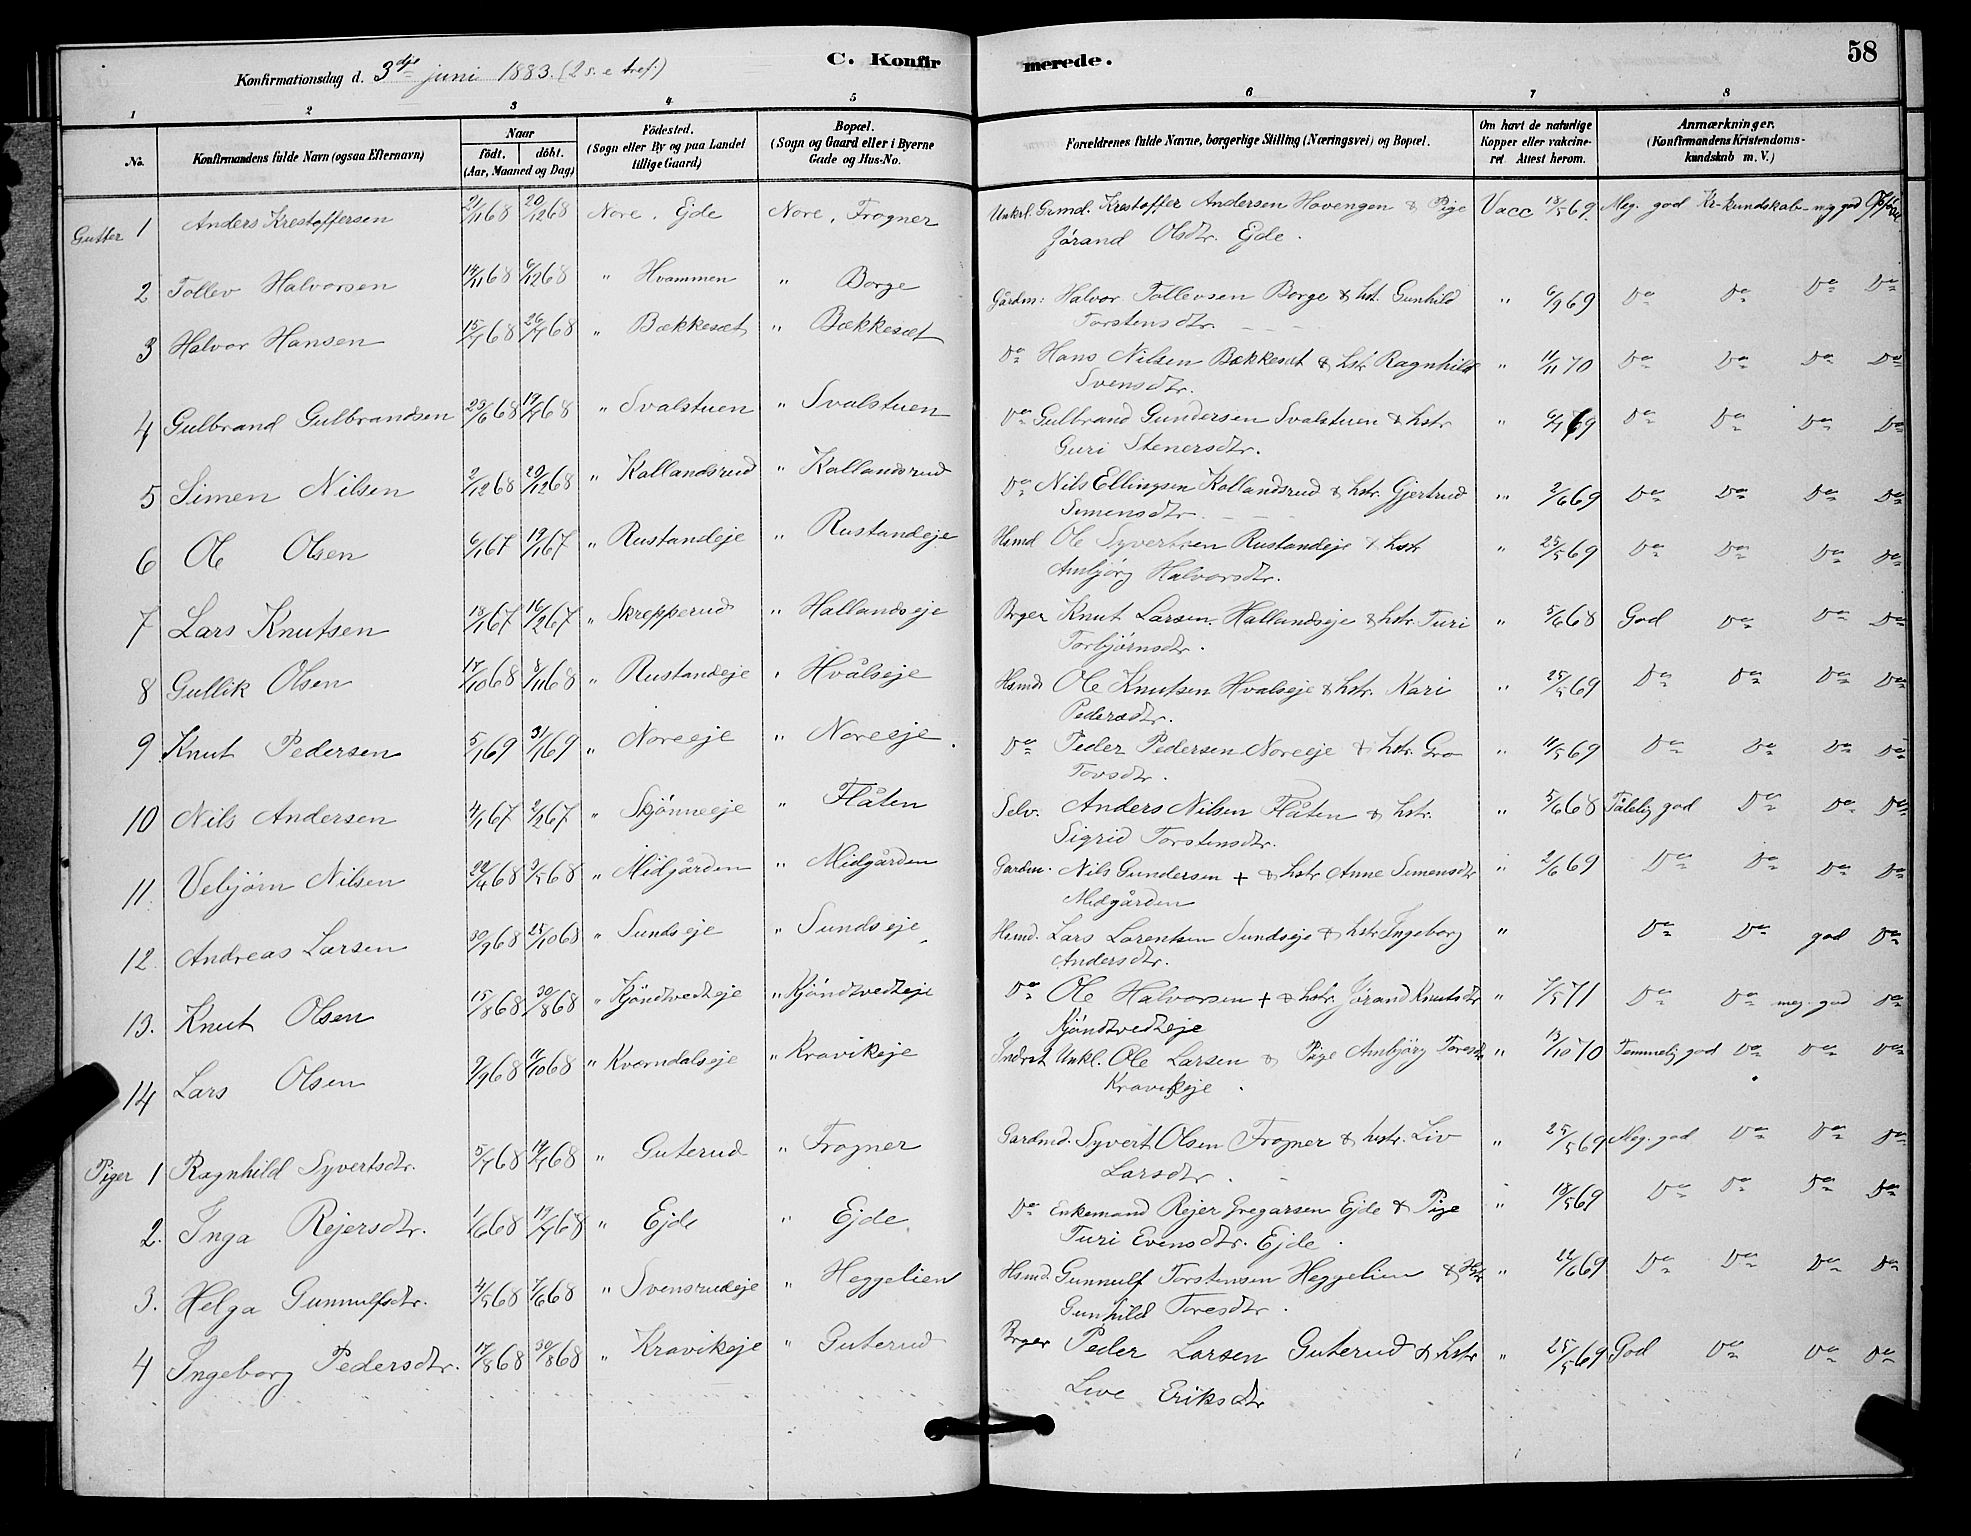 Konfirmationsdag d. 3die juni 1883. (2 s. e. tref.) C. Konfirmerede. 58
1 2 3 4 5 6 7 8
No. Konfirmandens fulde Navn (ogsaa Efternavn) Naar födt. döbt. (Aar, Maaned og Dag) Födested. (Sogn eller By og paa Landet tillige Gaard) Bopæl. (Sogn og Gaard eller i Byerne Gade og Hus-No. Forældrenes fulde Navne, borgerlige Stilling (Næringsvei) og Bopæl. Om havt de naturlige Kopper eller vakcineret. Attest herom. Anmærkninger. (Konfirmandens Kristendomskundskab m. V.)
Gutter 1 Anders Krestoffersen 21/11 68 20/12 68 Nore, Ejde Nore, Frogner Unkrl. Grmd. Krestoffer Andersen Hovengen & Pige Vacc 13/5 69 Meg. god Kr.kundskab- mg god Opførsel
Jørand Olsdtr. Ejde.
2 Tollev Halvorsen 14/11 68 6/12 68 " Hvammen " Borge Gårdm: Halvor Tollevsen Borge & hst. Gunhild " 6/9 69 Do Do Do Do
Torstensdtr.
3 Halvor Hansen 15/7 68 26/7 68 " Bækkesæt " Bækkesæt Do Hans Nilsen Bækkesæt & hstr Ragnhild " 11/11 70 Do Do Do Do
Svensdtr.
4 Gulbrand Gulbrandsen 23/6 68 19/7 68 " Svalstuen " Svalstuen Do Gulbrand Gundersen Svalstuen & hstr " 69 Do Do Do Do
Guri Stenersdtr.
5 Simen Nilsen 2/12 68 20/12 68 " Kallandsrud " Kallandsrud Do Nils Ellingsen Kallandsrud & hstr. Gjertrud " 2/6 69 Do Do Do Do
Simensdtr.
6 Ole Olsen 6/1 67 19/1 67 " Rustandeje " Rustandeje Hsmd Ole Syvertsen Rustandeje & hstr " 25/5 69 Do Do Do Do
Ambjørg Halvorsdtr.
7 Lars Knutsen 18/1 67 16/2 67 " Skrepperud " Hallandseje Brger Knut Larsen Hallandseje & hstr. Turi " 5/6 68 God Do Do Do
Torbjørnsdtr.
8 Gullik Olsen 17/10 68 8/11 68 " Rustandeje " Hvålseje Hsmd Ole Knutsen Hvalseje & hstr. Kari " 25/5 69 Do Do Do Do
Pedersdtr.
9 Knut Pedersen 5/1 69 31/1 69 " Noreeje " Noreeje. Do Peder Pedersen Noreeje & hstr. Gro " 4/5 69 Do Do Do Do
Tovsdtr.
10 Nils Andersen 4/1 67 2/2 67 " Skjønneeje " Flåten Selv. Anders Nilsen Flåten & hstr. " 5/6 68 Tålelig god Do Do Do
Sigrid Torstensdtr.
11. Vebjørn Nilsen 22/4 68 3/5 68 " Midgården " Midgården Gardm. Nils Gundersen + & hstr Anne Simensdtr " 2/6 69 Do Do Do Do
Midgården
12. Andreas Larsen 30/9 68 25/10 68 " Sundseje " Sundseje Hsmd. Lars Larentsen Sundseje & hstr Ingeborg " Do Do god Do
Andersdtr.
13. Knut Olsen 15/8 68 30/8 68 " Kjöndtvedteje " Kjöndtvedteje Do Ole Halvorsen + & hstr. Jørand Knutsdtr " 7/5 71 Do Do meg. god Do
Kjöndtvedteje
14 Lars Olsen 2/9 68 11/10 68 " Kværndalseje " Kravikeje Indrst Unkl. Ole Larsen & Pige Ambjörg Toresdtr " 13/10 70 Temmelig god Do Do Do
Kravikeje.
Piger 1 Ragnhild Syvertsdtr. 5/7 68 19/7 68 " Guterud " Frogner Gardmd. Syvert Olsen Frogner & hstr. Liv " 25/5 69 Meg. god Do Do Do
Larsdtr.
2. Inga Rejersdtr. 1/6 68 19/7 68 " Ejde " Ejde Do Enkemand Rejer Gregarsen Ejde & Pige " 18/5 69 Do Do Do Do
Turi Evensdtr. Ejde.
3. Helga Gunnulfsdtr. 4/5 68 7/6 68 " Svensrudeje " Heggelien Hsmd. Gunnulf Torstensen Heggelien & Hstr " 22/6 69 Do Do Do Do
Gunhild Toresdtr.
4 Ingeborg Pedersdtr. 17/8 68 30/8 68 " Kravikeje " Guterud Brger Peder Larsen Guterud & hstr " 25/5 69 God Do Do Do
Live Eriksdtr